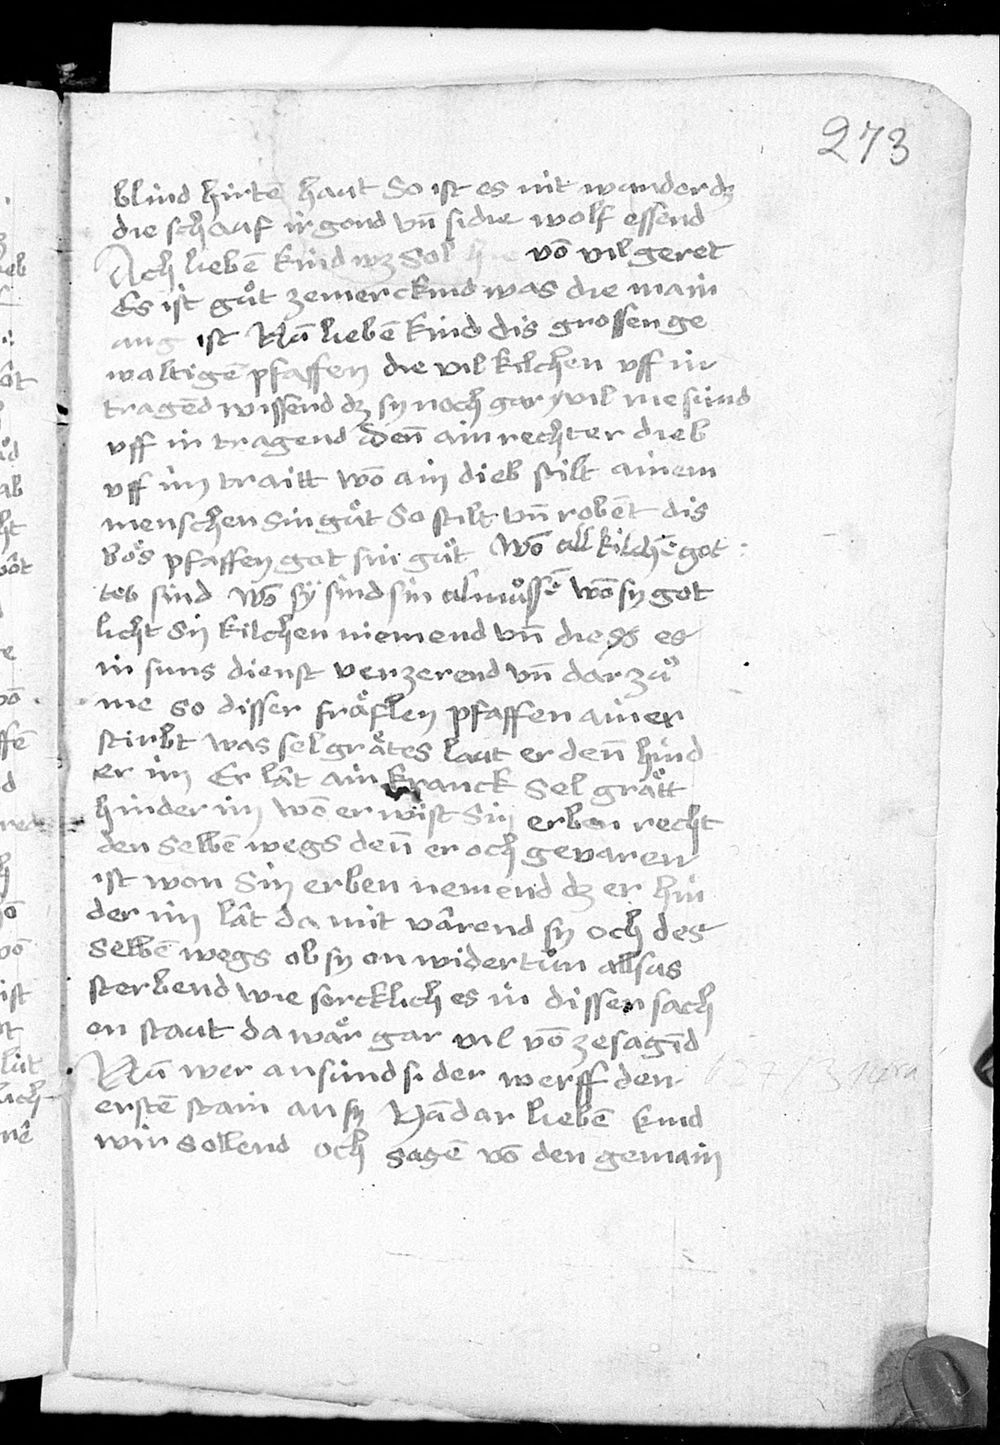 273
blind hirtē haut So ist es nit wunder dz
die schauf irgond vn̄ si die wolf essend
Ach liebē kind wz sol hie vō vil geret
Es ist gůt zemerckind was die main
ung ist Nū liebē kind dis grossen ge
waltigē pfaffen die vil kilchen vff in
tragēd wissend dz sy noch gar vil me sünd
vff in tragend Den̄ ain rechter dieb
vff im traitt wō ain dieb stilt ainem
menschen sin gůt So stilt vn̄ robēt dis
bo̊s pfaffen got sin gůt Wō all kilchē got
teb sind wō sÿ sind sin almůssē wō sy got
licht Sin kilchen niemend vn̄ die es
in suns dienst verzerend vn̄ dar zů
me so disser fräflen pfaffen ainer
stirbt was selgrätes laut er den̄ hind
er im Er lât ain kranck Selgrätt
hinder im wō er wist Sin erben recht
den Selbē wegs den̄ er och gevaren
ist won Sin erben nemend dz er hin
der im lât da mit vârend sy och des
Selbē wegs ob sy on widertůn allsus
sterbend wie sorcklich es in dissen sach
en staut da wär gar vil vō ze sagēd
Nū wer an sünd si der werff den
erstē stain an sy Nū dar liebē kind
wir sollend och sagē vō den gemain